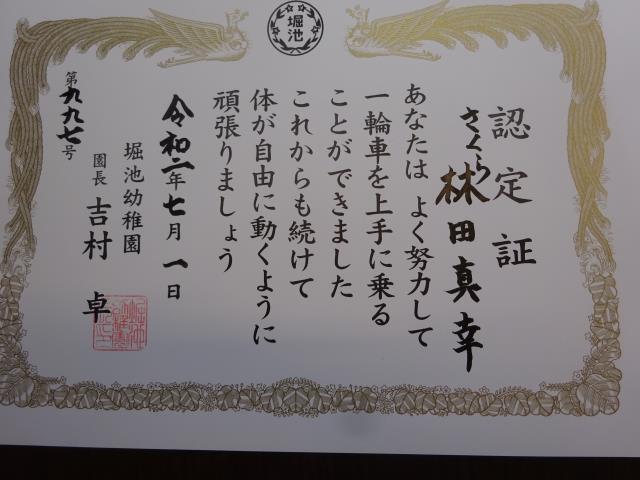 堀池
認定証
さくら 林田真幸
あなたは よく努力して
一輪車を上手に乗る
ことができました
これからも続けて
体が自由に動くように
頑張りましょう
令和二年七月一日
堀池幼稚園
園長 吉村 卓
第九九七号